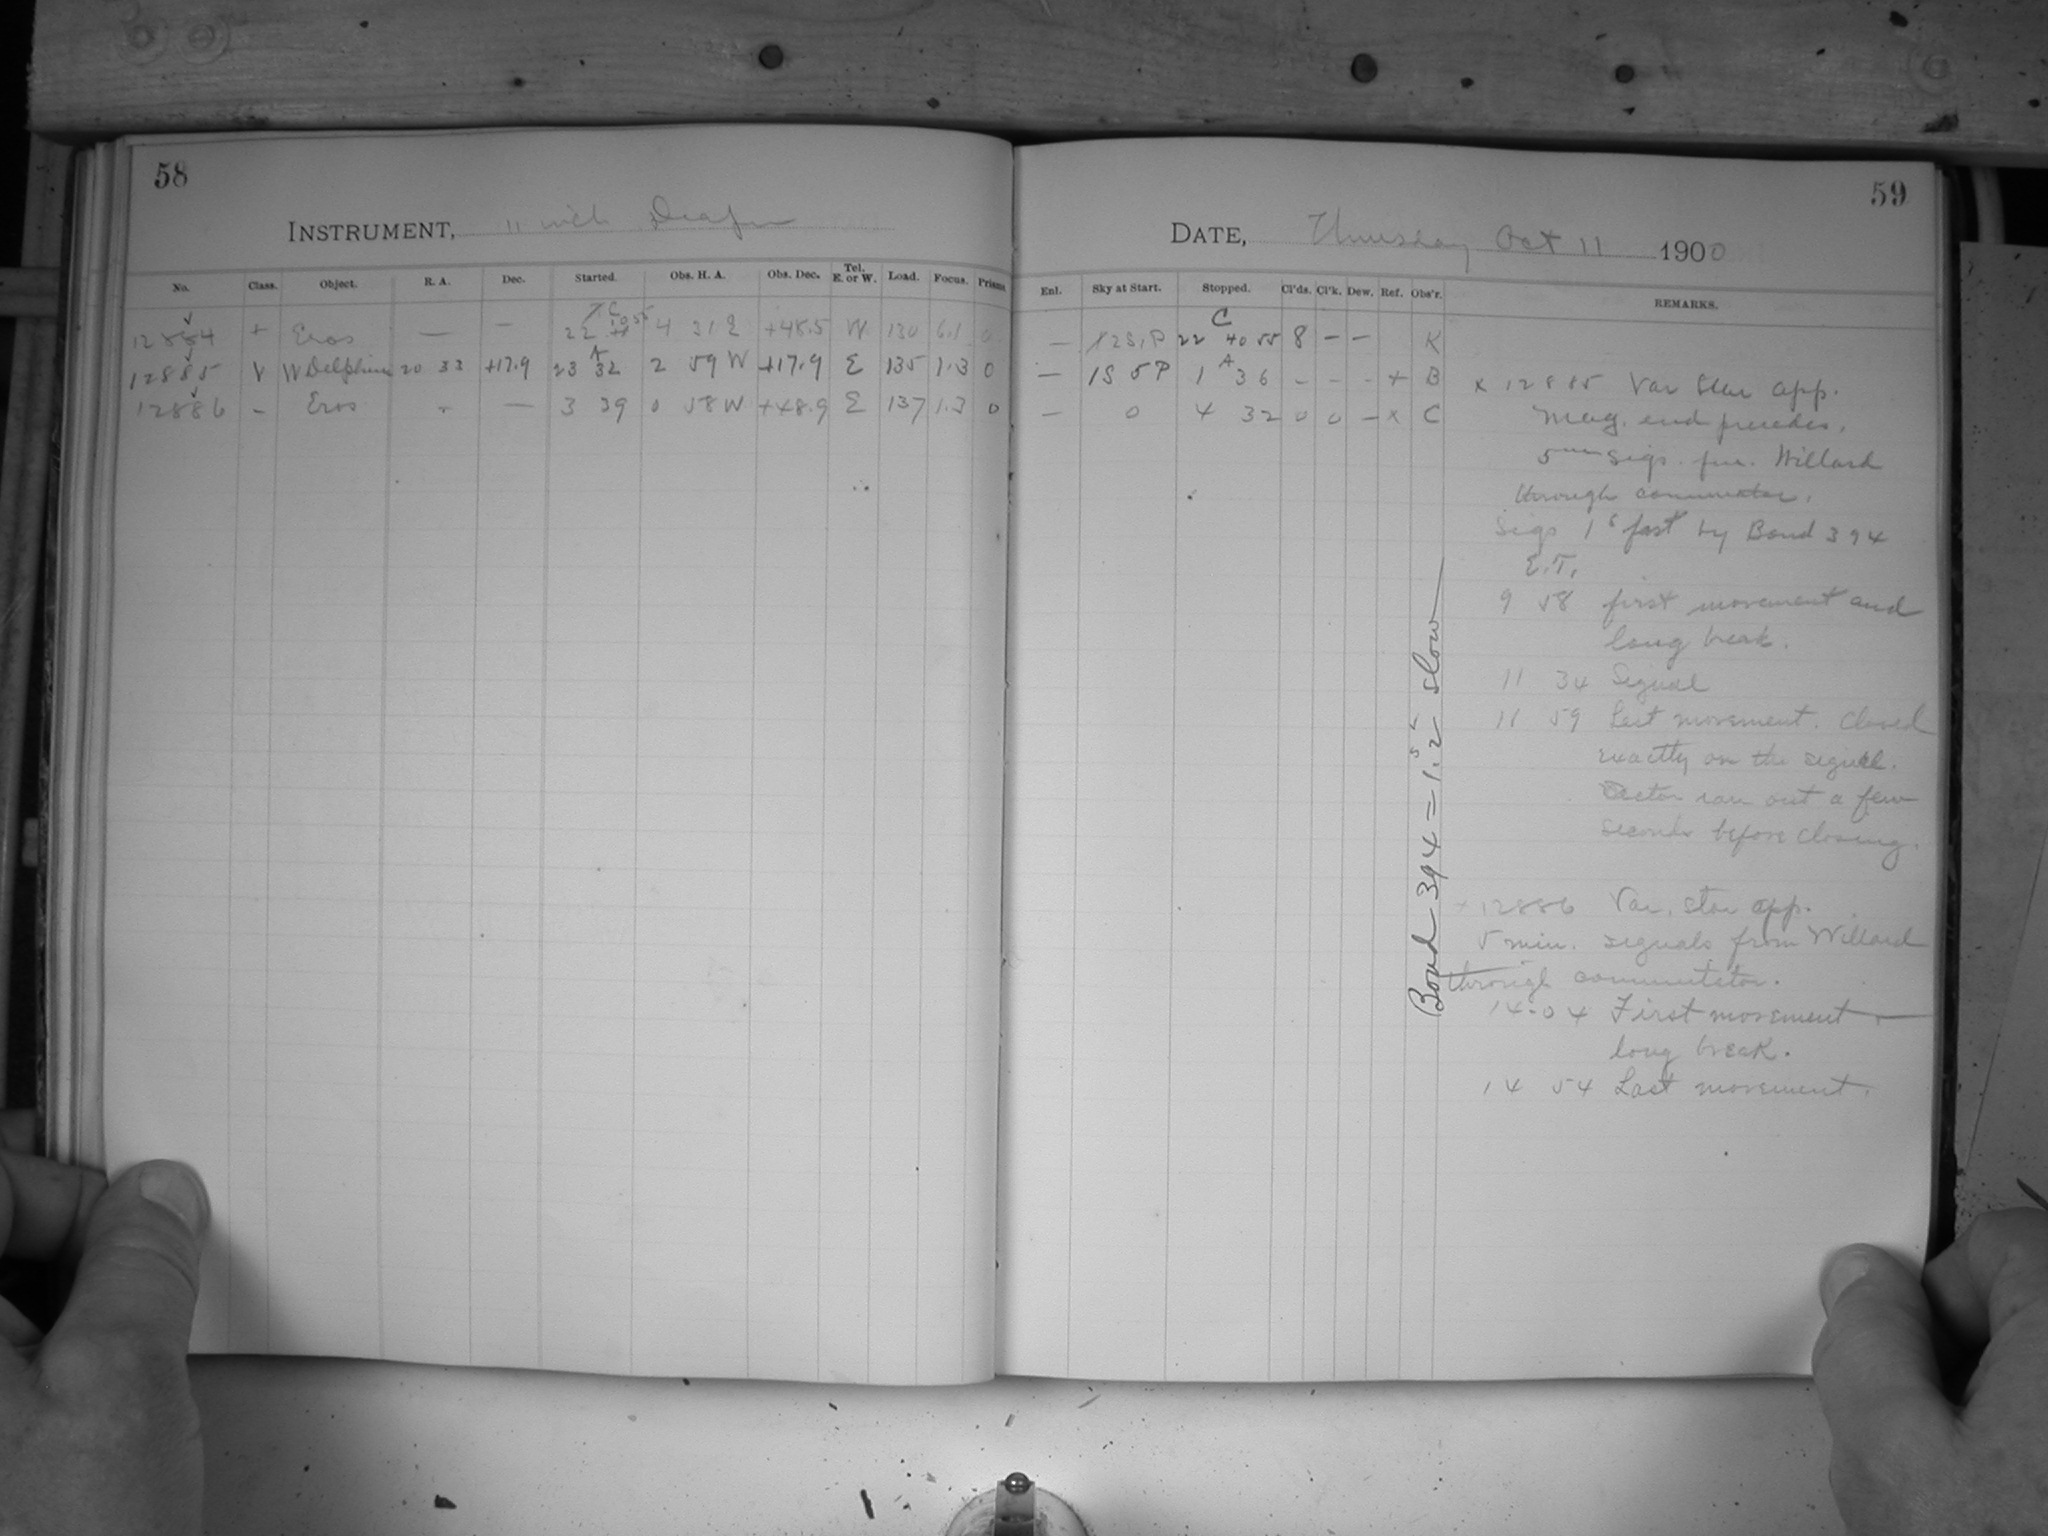 58
59
INSTRUMENT, 11 inch Draper
DATE, Thursday Oct 11 1900
No. Class. Object. R. A. Dec. Started. Obs. H. A. Obs. Dec. Tel. E. or W. Load. Focus. Prisms.
Enl. Sky at Start. Stopped. Cl'ds. Cl'k. Dew. Ref. Obs'r. REMARKS.
12884 + Eros — — 22 4 31 E +48.5 W 130 6.1 0 — C 22 40 55 8 — — K
12885 V W Delphini 20 33 +17.9 A 23 32 2 59 W +17.9 E 135 1.3 0 — 1S 5P A 1 36 - - - + B
12886 – Eros - — 3 39 0 58 W +48.9 E 137 1.3 0 — 0 4 32 0 0 – x C
x 12885 Var Star app.
Mag. end
5 min sigs. Willard
through commutator.
Sigs 1s fast by Bond 394
E.T.
9 58 first movement and
long break.
11 34 Signal
11 59 Last movement. Closed
exactly on the signal.
Sector ran out a few
seconds before closing.
Bond 394 = 1.s2 slow
+ 12886 Var. star app.
5 min. signals from Willard
through commutator.
14 04 First movement
long break.
14 54 Last movement.